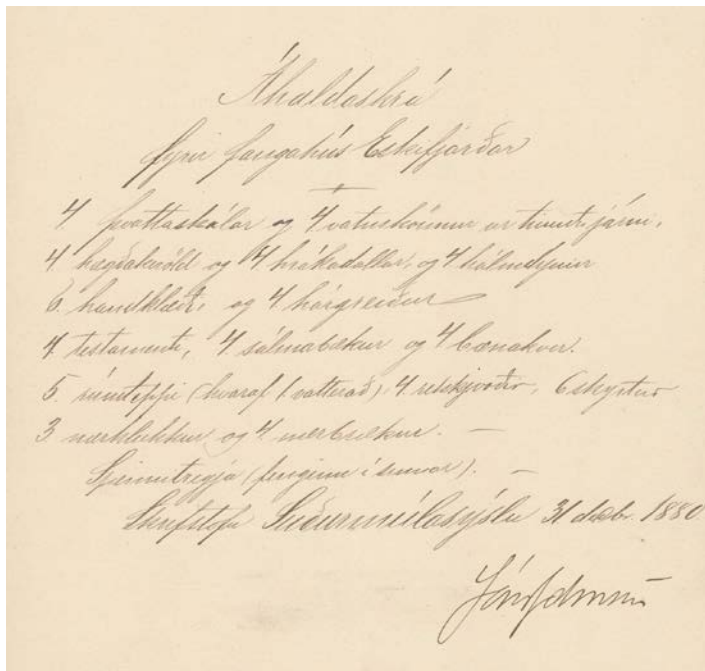 Áhaldaskrá
fyrir fangahús Eskifjarðar
4 þvottaskálar og 4 vatnskönnur úr tinuðu járni.
4 hægðakoöld og 4 hrákadallar, og 4 hálmdýnur
6 handklæði, og 4 hárgreiður
4 testamenti, 4 sálmabækur og 4 bænakver.
5 rúmteppi (hvaraf 1 vatterað), 4 rekkjvoðir, 6 skyrtur
3 nærklukkur og 4 nærbrækur. —
Spennitreyja (fengin í sumar). —
Skrifstofu Suðurmúlasýslu 31 desbr. 1880